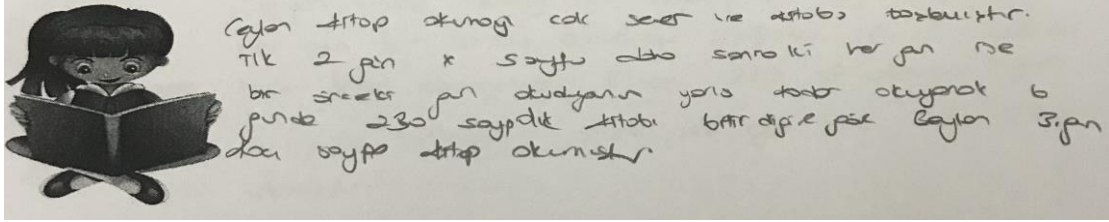 Ceylan kitap okumayı çok sever ve kitaba başlamıştır.
İlk 2 gün x sayfa daha sonraki her gün ise
bir önceki gün okuduğunun yarısı kadar okuyarak 6
günde 230 sayfalık kitabı bitirdiğine göre Ceylan 3. gün
kaç sayfa kitap okumuştur.